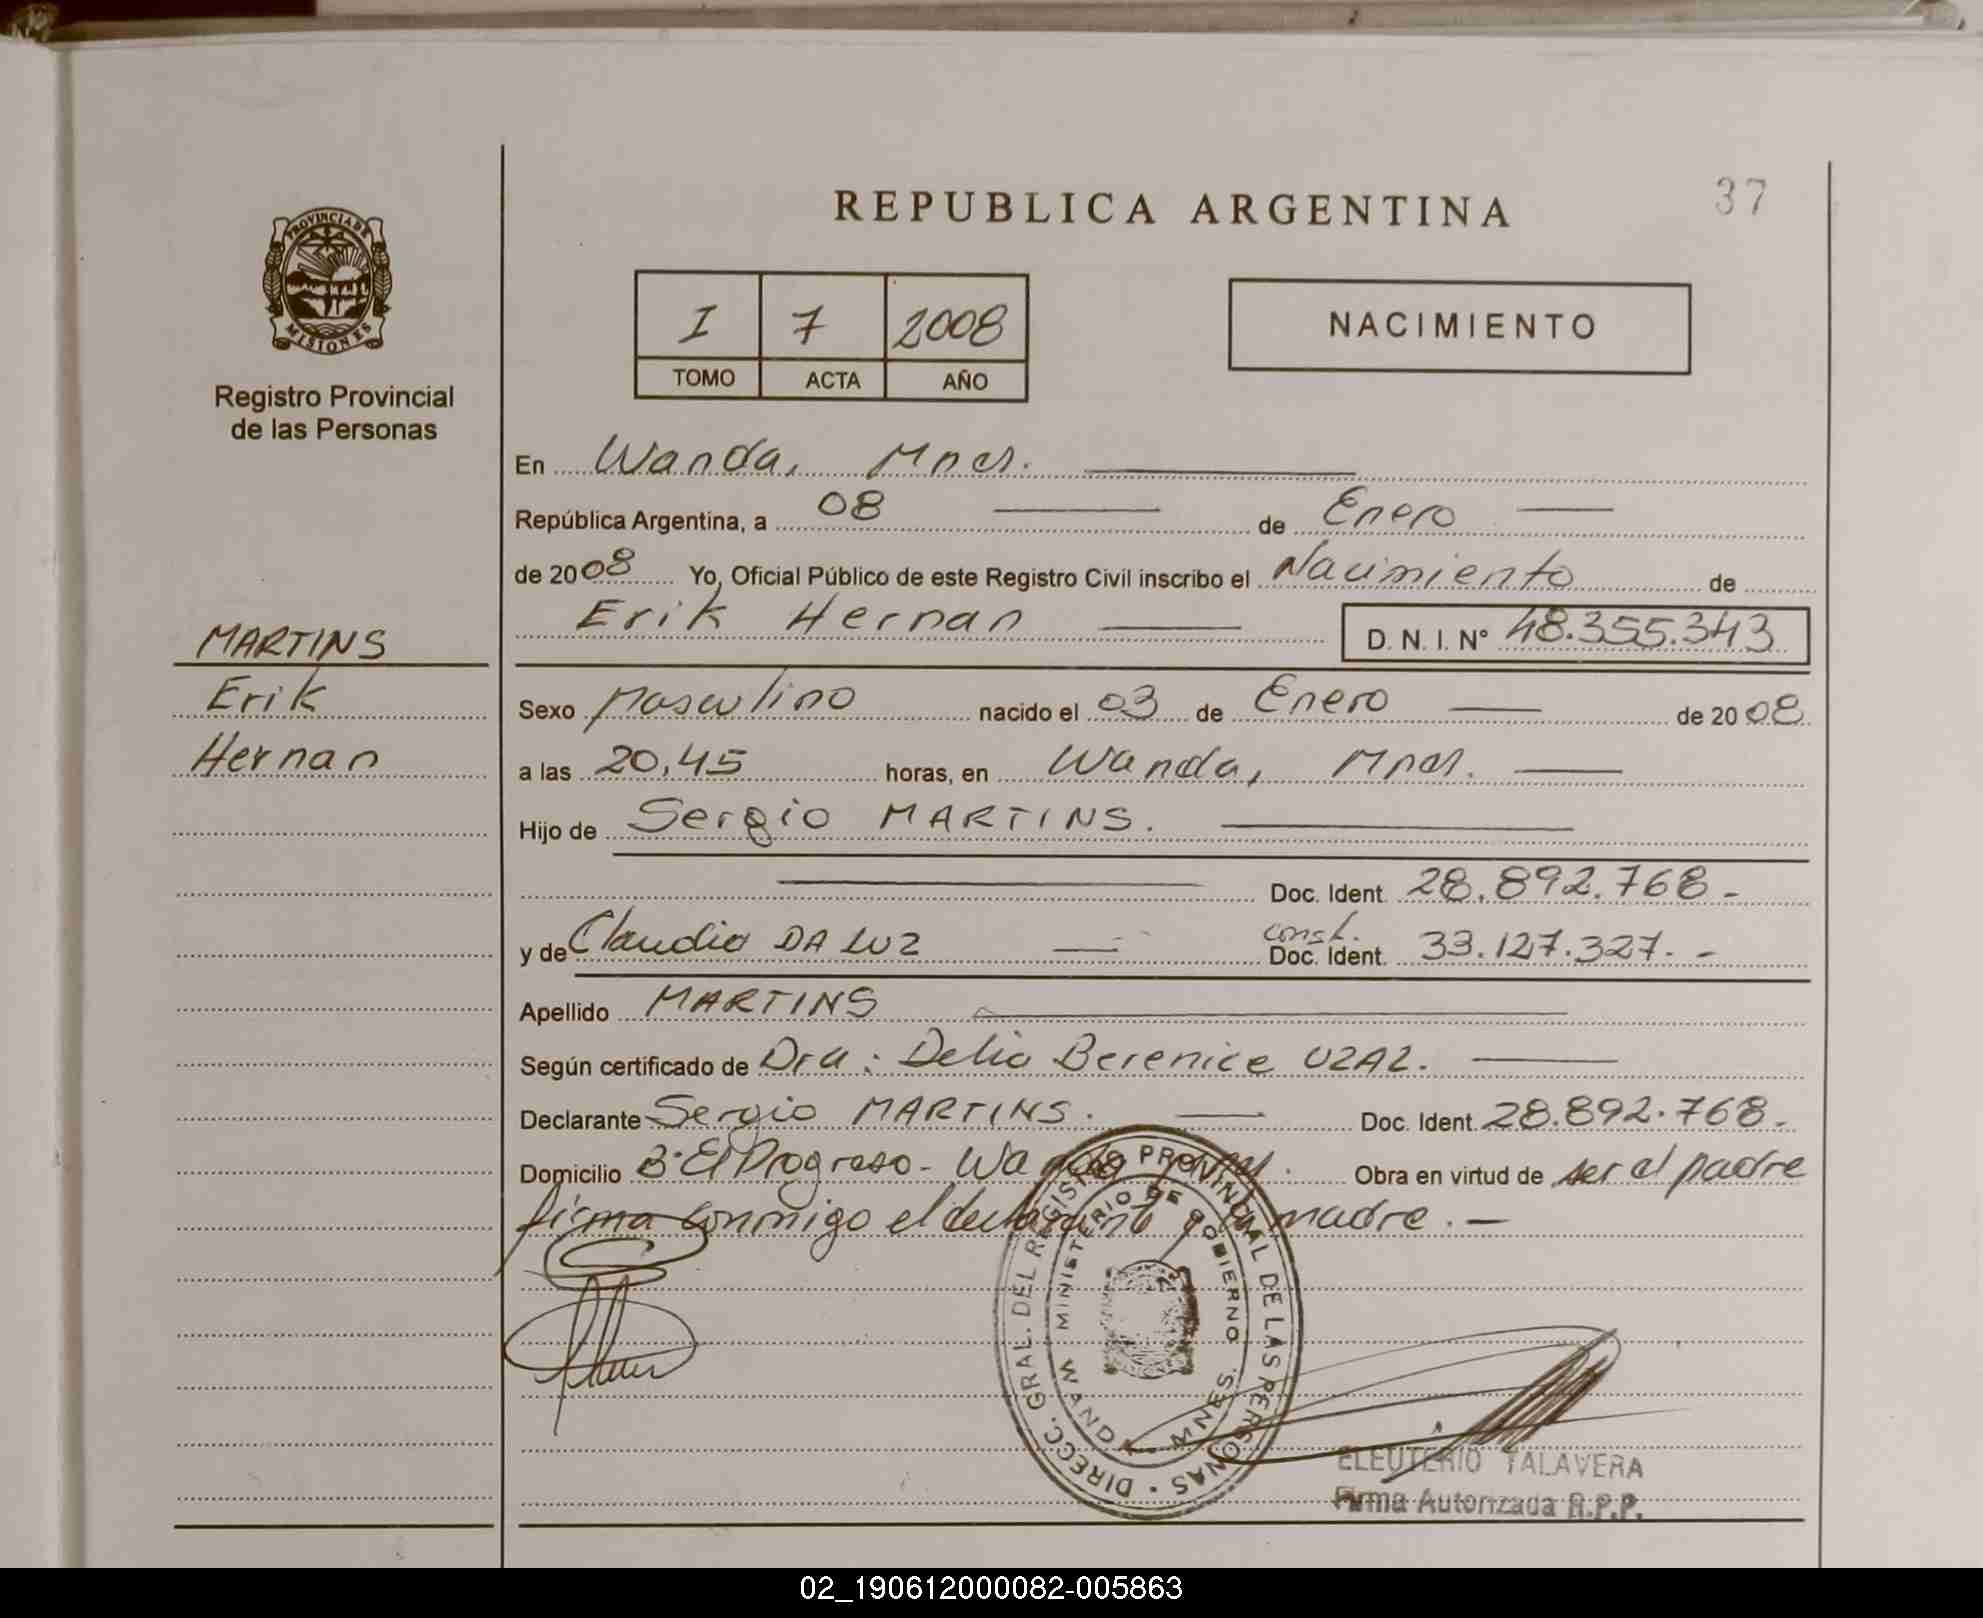 REPUBLICA ARGENTINA
37
PROVINCIA DE
MISIONES
Registro Provincial
de las Personas
I 7 2008
TOMO ACTA AÑO
NACIMIENTO
En Wanda, Mnes.
República Argentina, a 08 de Enero
de 2008 Yo, Oficial Público de este Registro Civil inscribo el Nacimiento de
Erik Hernan D. N. I. Nº 48.355.343
MARTINS
Erik
Hernan
Sexo Masculino nacido el 03 de Enero de 2008
a las 20,45 horas, en Wanda, Mnes.
Hijo de Sergio MARTINS.
Doc. Ident. 28.892.768-
const.
y de Claudia DA LUZ Doc. Ident. 33.127.327.-
Apellido MARTINS
Según certificado de Dra: Delia Berenice UZAL.
Declarante Sergio MARTINS. Doc. Ident. 28.892.768-
Domicilio B° El Progreso- Wanda Mnes. Obra en virtud de ser el padre
firma conmigo el declarante y la madre.-
DIRECC. GRAL. DEL REGISTRO PROVINCIAL DE LAS PERSONAS
MINISTERIO DE GOBIERNO
WANDA MNES.
ELEUTERIO TALAVERA
Firma Autorizada R.P.P.
02_190612000082-005863